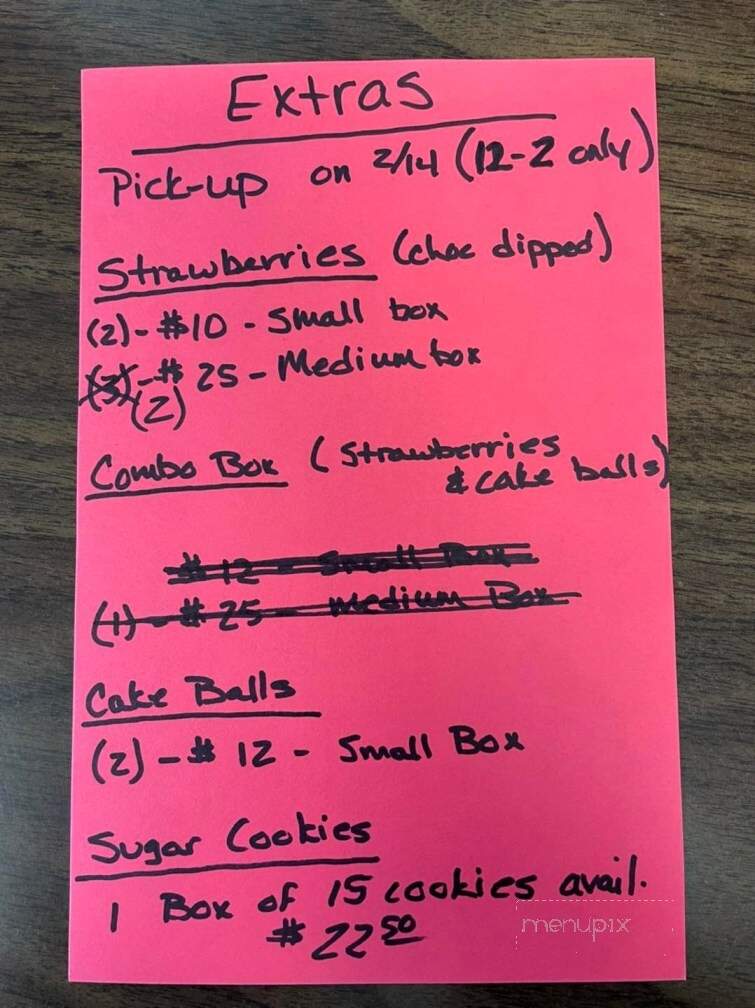 Extras
Pick-up on 2/14 (12-2 only)
Strawberries (choc dipped)
(2) - $10 - Small box
(3) - $ 25 - Medium box
(2)
Combo Box (Strawberries
& cake balls)
$ 12 - Small Box
(1) - $ 25 - Medium Box
Cake Balls
(2) - $ 12 - Small Box
Sugar Cookies
1 Box of 15 cookies avail.
$ 22 50
menupix